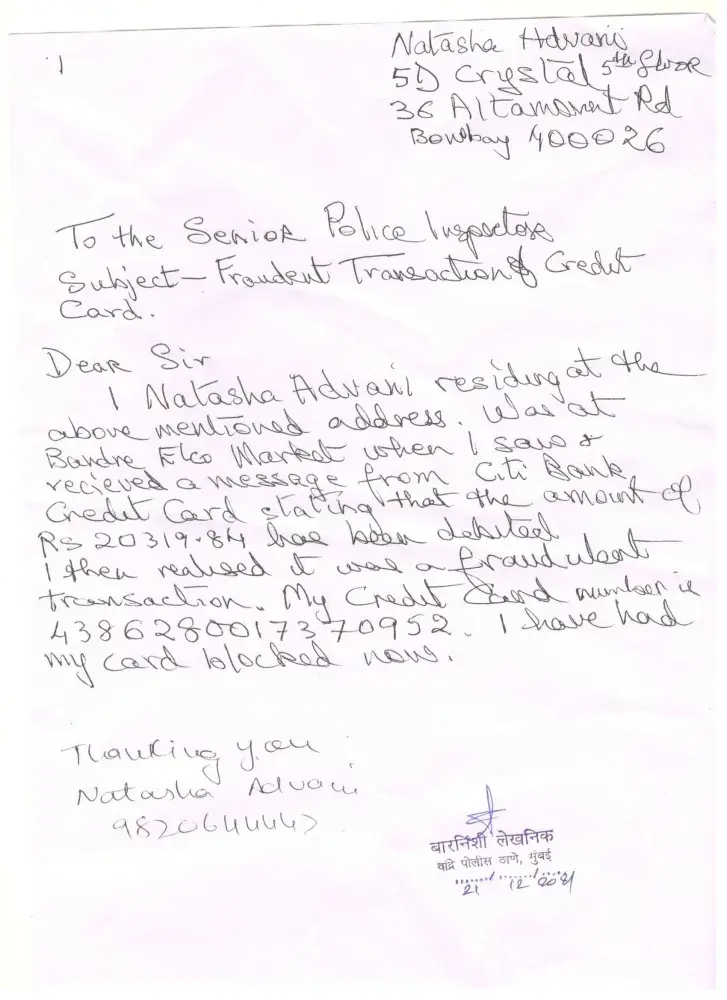 1
Natasha Advani
5D Crystal 5th floor
36 Altamount Rd
Bombay 400026
To the Senior Police Inspector
Subject - Fraudent Transaction of Credit
Card.
Dear Sir
I Natasha Advani residing at the
above mentioned address. Was at
Bandra Elco Market when I saw &
recieved a message from Citi Bank
Credit Card stating that the amount of
Rs 20319.84 has been debited
I then realised it was a fraudulent
transaction. My Credit Card number is
4386280017370952. I have had
my card blocked now.
Thanking you
Natasha Advani
बारनिशी लेखनिक
वांद्रे पोलीस ठाणे, मुंबई
21/12/